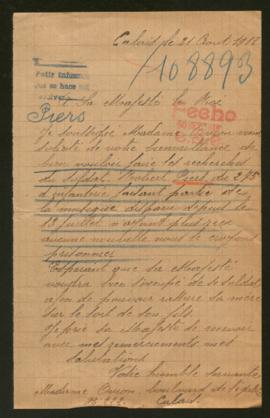 Calais le 21 Aout 1918
108893
Pour informer
Piers
A Sa Majesté le Roi
Je soussigné Madame
solicite de votre bienveillance de
bien vouloir faire les recherches
du soldat Robert Piers du 2/5
d'infanterie faisant partie de
la musique disparu depuis le
18 juillet n'ayant plus reçu
aucune nouvelle nous le croyons
prisonnier
Espérant que Sa Majesté
voudra bien s'occupé de ce soldat
afin de pouvoir rassure sa mère
sur le sort de son fils.
Je prie Sa Majesté de recevoir
avec mes remerciements mes
salutations
Votre humble servante
Madame boulevard
Calais.